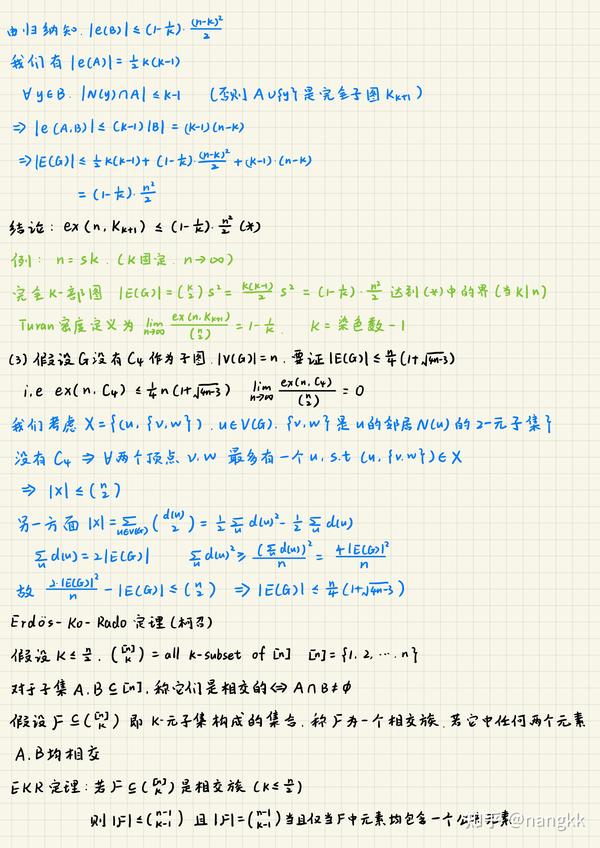 由归纳知. |e(B)| ≤ (1-1/k)·(n-k)²/2
我们有 |e(A)| = 1/2 k(k-1)
∀y∈B. |N(y)∩A| ≤ k-1 (否则 A∪{y} 是完全子图 K_{k+1})
⇒ |e(A,B)| ≤ (k-1)|B| = (k-1)(n-k)
⇒ |E(G)| ≤ 1/2 k(k-1) + (1-1/k)·(n-k)²/2 + (k-1)·(n-k)
= (1-1/k)·n²/2
结论: ex(n, K_{k+1}) ≤ (1-1/k)·n²/2 (*)
例: n = sk. (k固定. n→∞)
完全k-部图 |E(G)| = (k 2) s² = k(k-1)/2 s² = (1-1/k)·n²/2 达到(*)中的界 (当k|n)
Turan 密度定义为 lim_{n→∞} ex(n,K_{k+1})/(n 2) = 1-1/k. K=染色数-1
(3) 假设G没有C₄作为子图. |V(G)|=n. 要证|E(G)| ≤ n/4(1+√4n-3)
i.e ex(n, C₄) ≤ 1/4 n(1+√4n-3) lim_{n→∞} ex(n,C₄)/(n 2) = 0
我们考虑 X = {(u, {v,w}). u∈V(G). {v,w}是u的邻居N(u)的2-元子集}
没有C₄ ⇒ ∀两个顶点 v,w 最多有一个u, s.t (u, {v,w})∈X
⇒ |X| ≤ (n 2)
另一方面 |X| = Σ_{u∈V(G)} (d(u) 2) = 1/2 Σ_u d(u)² - 1/2 Σ_u d(u)
Σ_u d(u) = 2|E(G)| Σ_u d(u)² ≥ (Σ_u d(u))²/n = 4|E(G)|²/n
故 2·|E(G)|²/n - |E(G)| ≤ (n 2) ⇒ |E(G)| ≤ n/4(1+√4n-3)
Erdös-Ko-Rado 定理 (柯召)
假设 k ≤ n/2. ([n] k) = all k-subset of [n] [n] = {1, 2, ⋯, n}
对于子集 A,B ⊆ [n], 称它们是相交的 ⇔ A∩B ≠ ∅
假设 F ⊆ ([n] k) 即 k-元子集构成的集合. 称F为一个相交族. 若它中任何两个元素
A,B均相交
EKR 定理: 若F ⊆ ([n] k) 是相交族 (k ≤ n/2)
则 |F| ≤ (n-1 k-1) 且 |F| = (n-1 k-1) 当且仅当F中元素均包含一个公共元素
知乎 @nangkk